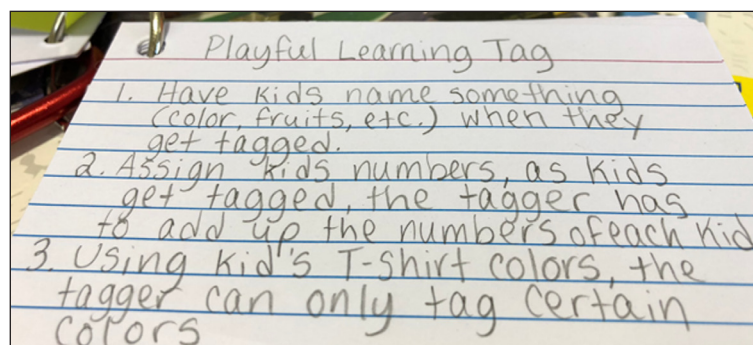 Playful Learning Tag
1. Have kids name something
(color, fruits, etc.) when they
get tagged.
2. Assign kids numbers, as kids
get tagged, the tagger has
to add up the numbers of each kid
3. Using kid's T-Shirt colors, the
tagger can only tag certain
colors